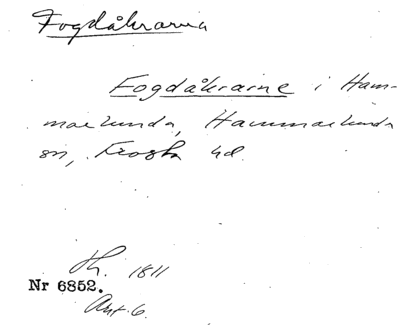 Fogdåkrarna
Fogdåkrarne i Ham-
marlunda, Hammarlunda
sn, Frosta hd.
Th. 1811
Nr 6852.
Akt 6.